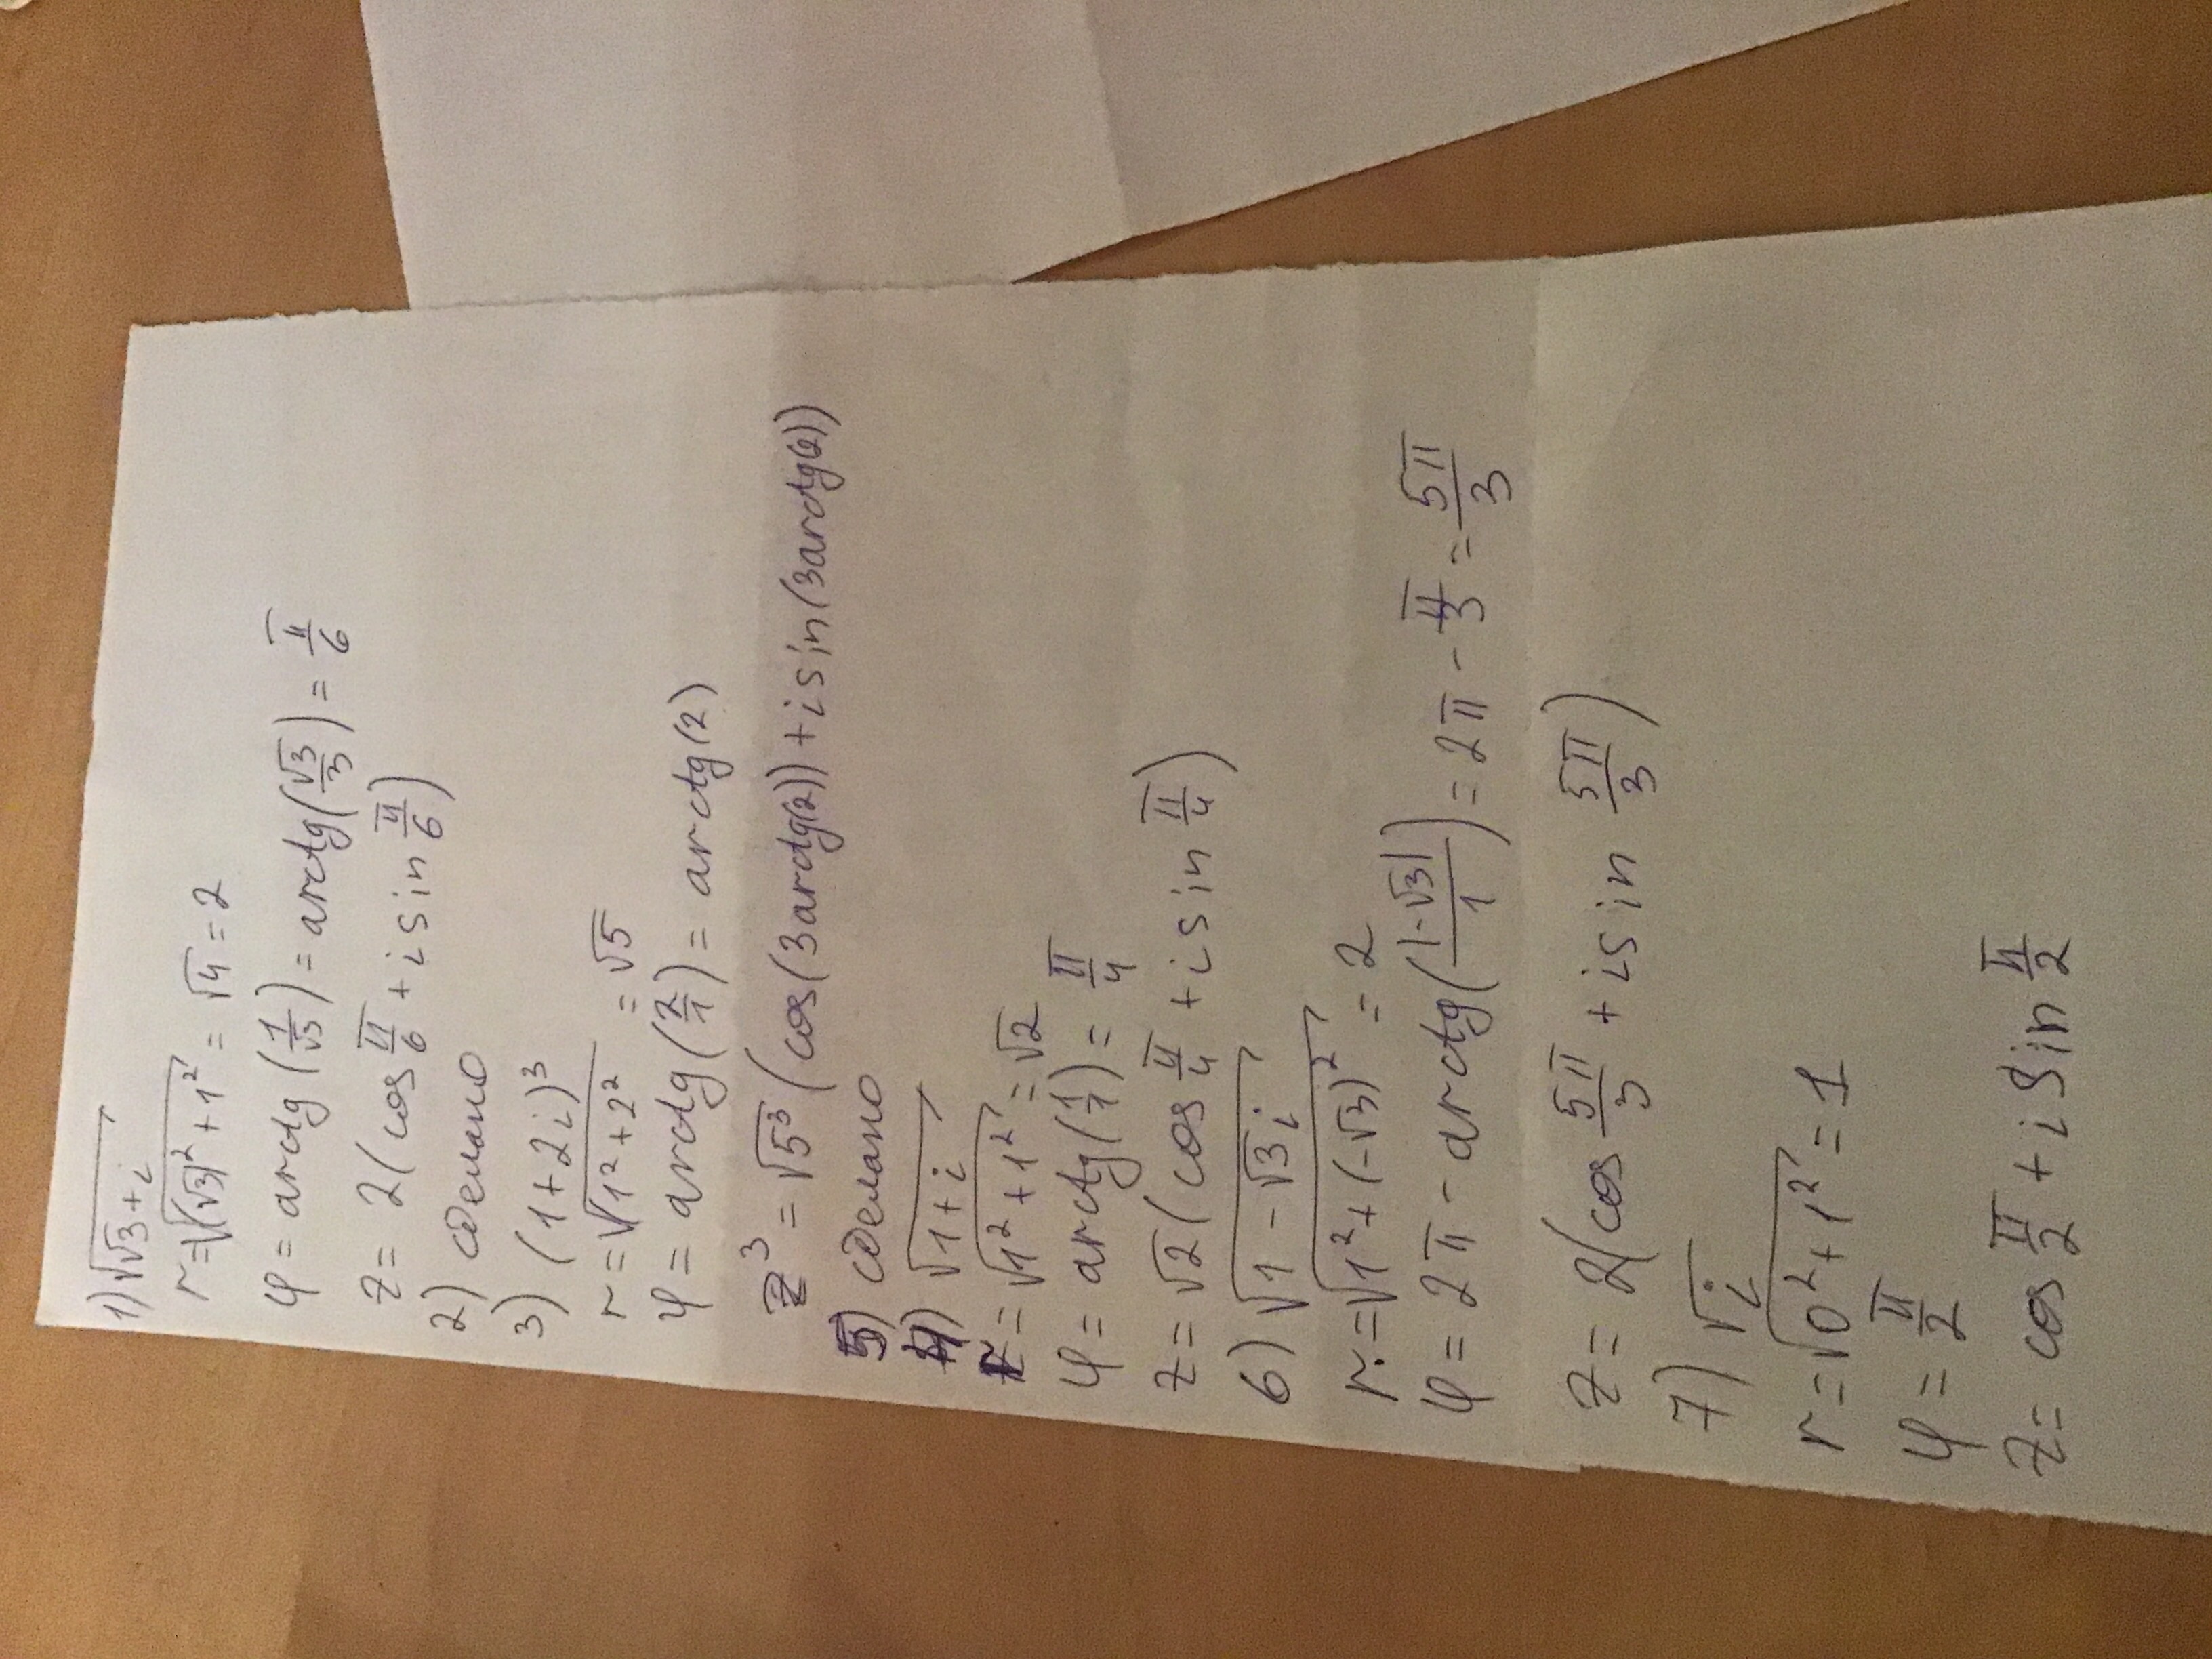 1) √(√3+i)
r=√((√3)²+1²) = √4=2
φ=arctg(1/√3)=arctg(√3/3)=π/6
z=2(cos π/6+i sin π/6)
2) сделано
3) (1+2i)³
r=√(1²+2²)=√5
φ=arctg(2/1)=arctg(2)
z³=√5³(cos(3arctg(2))+i sin(3arctg(2))
5) сделано
4) √(1+i)
r=√(1²+1²)=√2
φ=arctg(1/1)=π/4
z=√2(cos π/4+i sin π/4)
6) √(1-√3i)
r=√(1²+(-√3)²)=2
φ=2π-arctg(|-√3|/1)=2π-π/3=5π/3
z=2(cos 5π/3+i sin 5π/3)
7) √i
r=√(0²+1²)=1
φ=π/2
z=cos π/2+i sin π/2